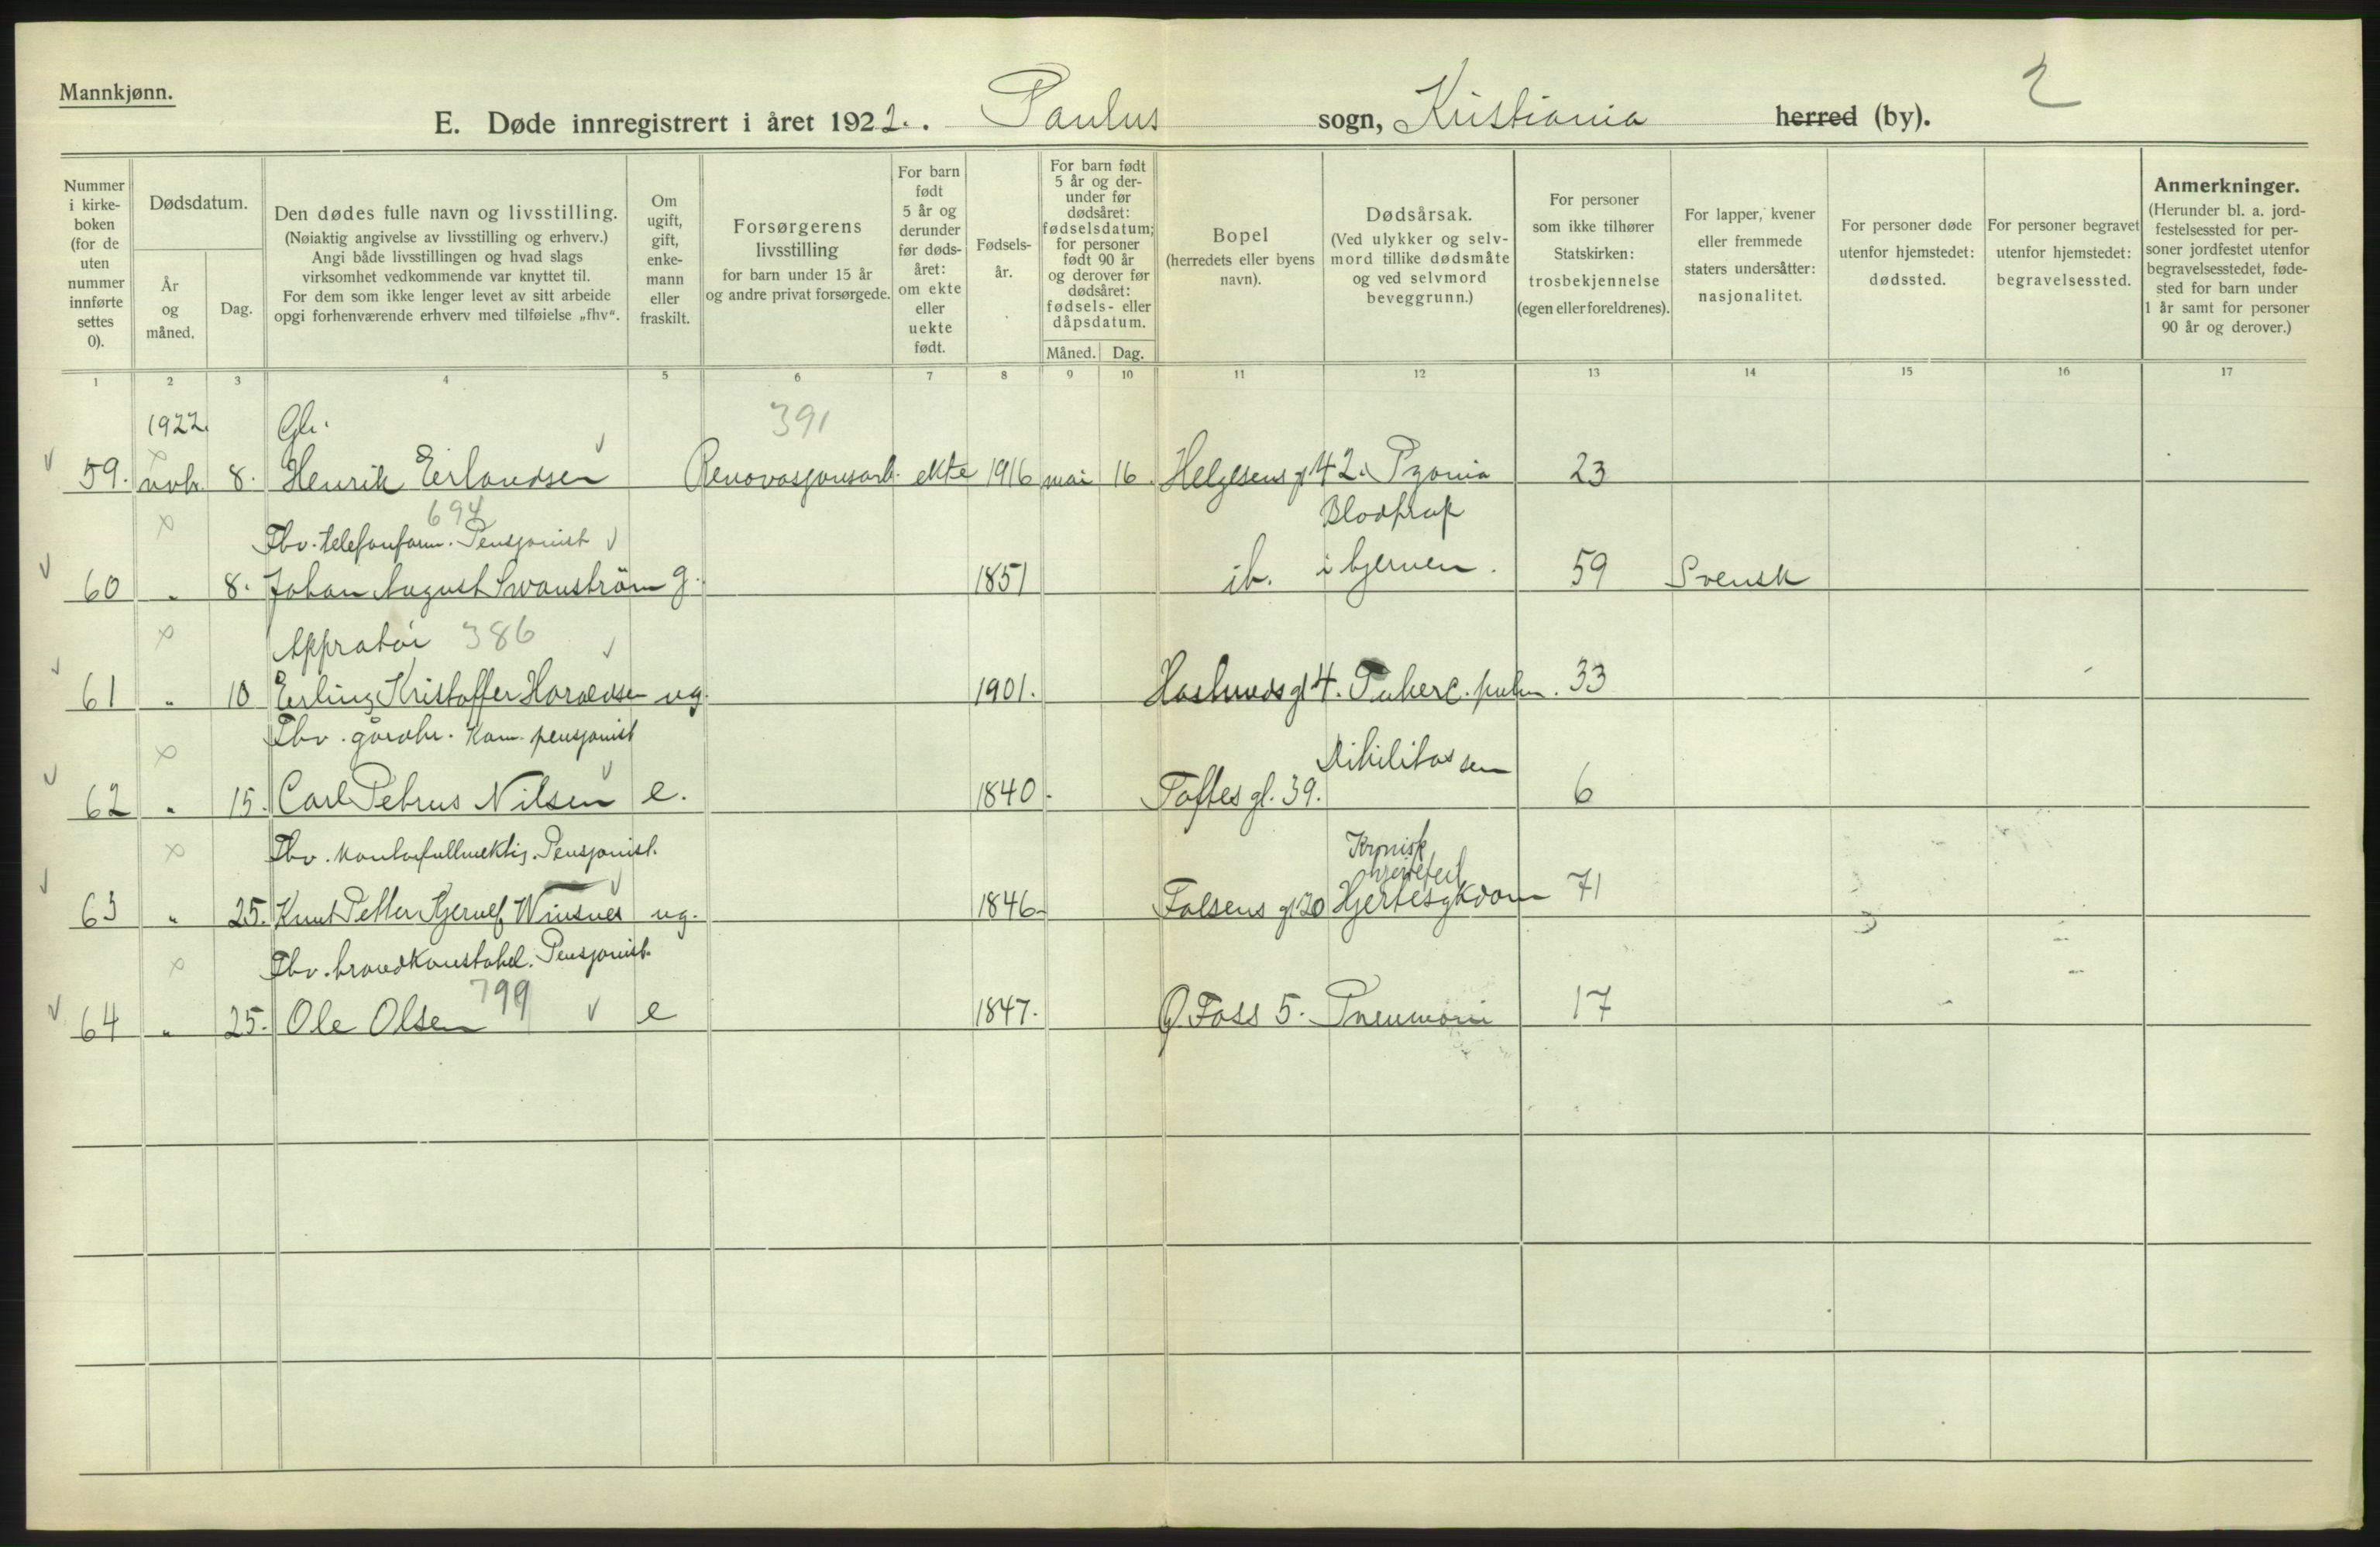 Mannkjønn.
2
E. Døde innregistrert i året 1922. Paulus sogn, Kristiania herred (by).
Nummer i kirkeboken (for de uten nummer innførte settes 0).
Dødsdatum.
År og måned.
Dag.
Den dødes fulle navn og livsstilling.
(Nøiaktig angivelse av livsstilling og erhverv.)
Angi både livsstillingen og hvad slags
virksomhet vedkommende var knyttet til.
For dem som ikke lenger levet av sitt arbeide
opgi forhenværende erhverv med tilføielse „fhv“.
Om ugift, gift, enkemann eller fraskilt.
Forsørgerens livsstilling
for barn under 15 år
og andre privat forsørgede.
For barn født 5 år og derunder før dødsåret: om ekte eller uekte født.
Fødselsår.
For barn født 5 år og derunder før dødsåret: fødselsdatum; for personer født 90 år og derover før dødsåret: fødsels- eller dåpsdatum.
Måned. Dag.
Bopel
(herredets eller byens navn).
Dødsårsak.
(Ved ulykker og selvmord tillike dødsmåte og ved selvmord beveggrunn.)
For personer som ikke tilhører Statskirken: trosbekjennelse (egen eller foreldrenes).
For lapper, kvener eller fremmede staters undersåtter: nasjonalitet.
For personer døde utenfor hjemstedet: dødssted.
For personer begravet utenfor hjemstedet: begravelsessted.
Anmerkninger.
(Herunder bl. a. jordfestelsessted for personer jordfestet utenfor begravelsesstedet, fødested for barn under 1 år samt for personer 90 år og derover.)
1 2 3 4 5 6 7 8 9 10 11 12 13 14 15 16 17
1922. 391
59. novb. 8. Henrik Erlandsen Renovasjonsarb. ekte 1916 mai 16 Helgesens gt 42. Pyomia 23
694
Fhv. telefonform. Pensjonist Blodprop
60 " 8. Johan August Swanström g. 1851 ib. i hjernen. 59 Svensk
Appratör 386
61 " 10 Erling Kristoffer Haraldsen ug. 1901. Haslunds gt 4. Tuberc. pulm. 33
Fhv. gårdbr. Kom. pensjonist
62 " 15. Carl Petrus Nilsen e. 1840. Toftes gt. 39. 6
Fhv. Kontorfullmektig. Pensjonist. Kronisk
hjertefeil
63 " 25. Knut Petter Kjerulf Winsnes ug. 1846. Falsens gt 20 Hjertesykdom 71
Fhv. brandkonstabel. Pensjonist.
799
64 " 25. Ole Olsen e 1847. Ø. Foss 5. Pneumoni 17